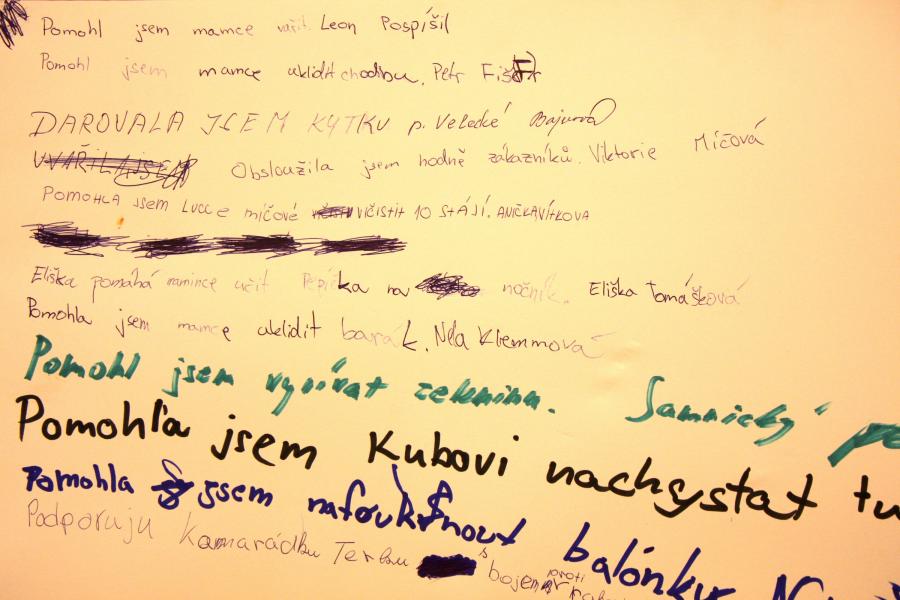 Pomohl jsem mamce vařit. Leon Pospíšil
Pomohl jsem mamce uklidit chodbu. Petr Fišer
DAROVALA JSEM KYTKU p. Velecké Bajurová
UVAŘILA JSEM Obsloužila jsem hodně zákazníků. Viktorie Míčová
POMOHLA JSEM LUCCE míčové VIČISTIT 10 STÁJÍ. ANIČKAVÍTKOVA
Eliška pomáhá mamince učit Pepíčka na nočník. Eliška Tomášková
Pomohla jsem mamce uklidit barák. Nela Klemmová
Pomohl jsem vyrívat zelenina. Samnický
Pomohľa jsem Kubovi nachystat
Pomohla jsem nafouknout balónky
Podporuju kamarádku Terku s bojem proti